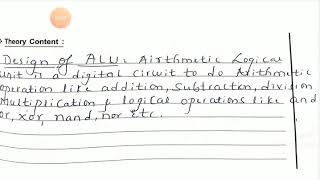 Theory Content :
Design of ALU: Airthmetic Logical
unit is a digital Circuit to do Arithmetic
operation like addition, Subtraction, division
Multiplication & logical operations like and
or, xor, nand, nor etc.